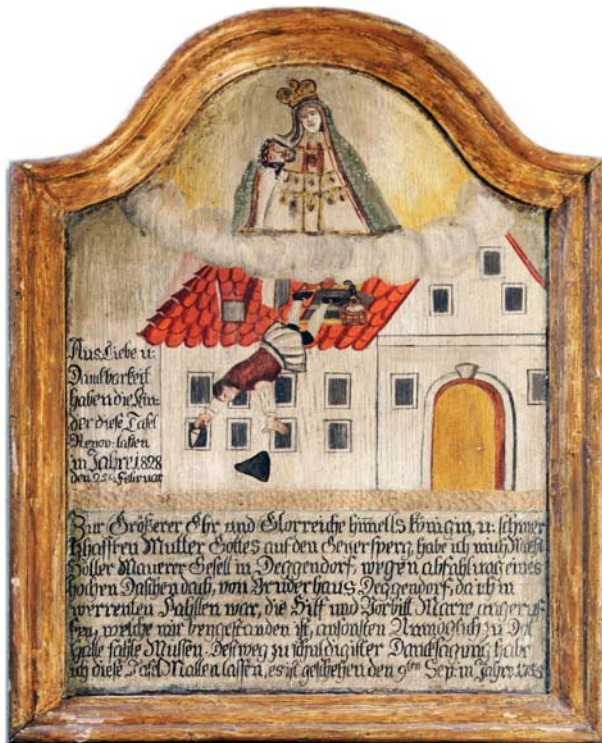 Aus Liebe u:
Dankbarkeit
haben die Kin-
der diese Tafel
Renov: lassen
im Jahre 1828
den 25t Februar
Zur Größerer Ehr und Glorreiche himells Königin, u: schmer
zhafften Mutter Gottes auf den Geyersperg, habe ich mich
Holler Maurer Gesell in Deggendorf, wegen abfahlung eines
hochen Daschen dach, von Bruderhaus Deggendorf, da ich in
werrenten Fahllen war, die Hilf und Vorbitt Marie angeruf-
fen, welche mir beygestanden ist, ansonsten Unmöglich zu
fahle Mussen. Deßweg zu schuldigister Dancksagung habe
ich diese Tafel Mallen lassen, es ist geschehen den 9ten Sep: im Jahre